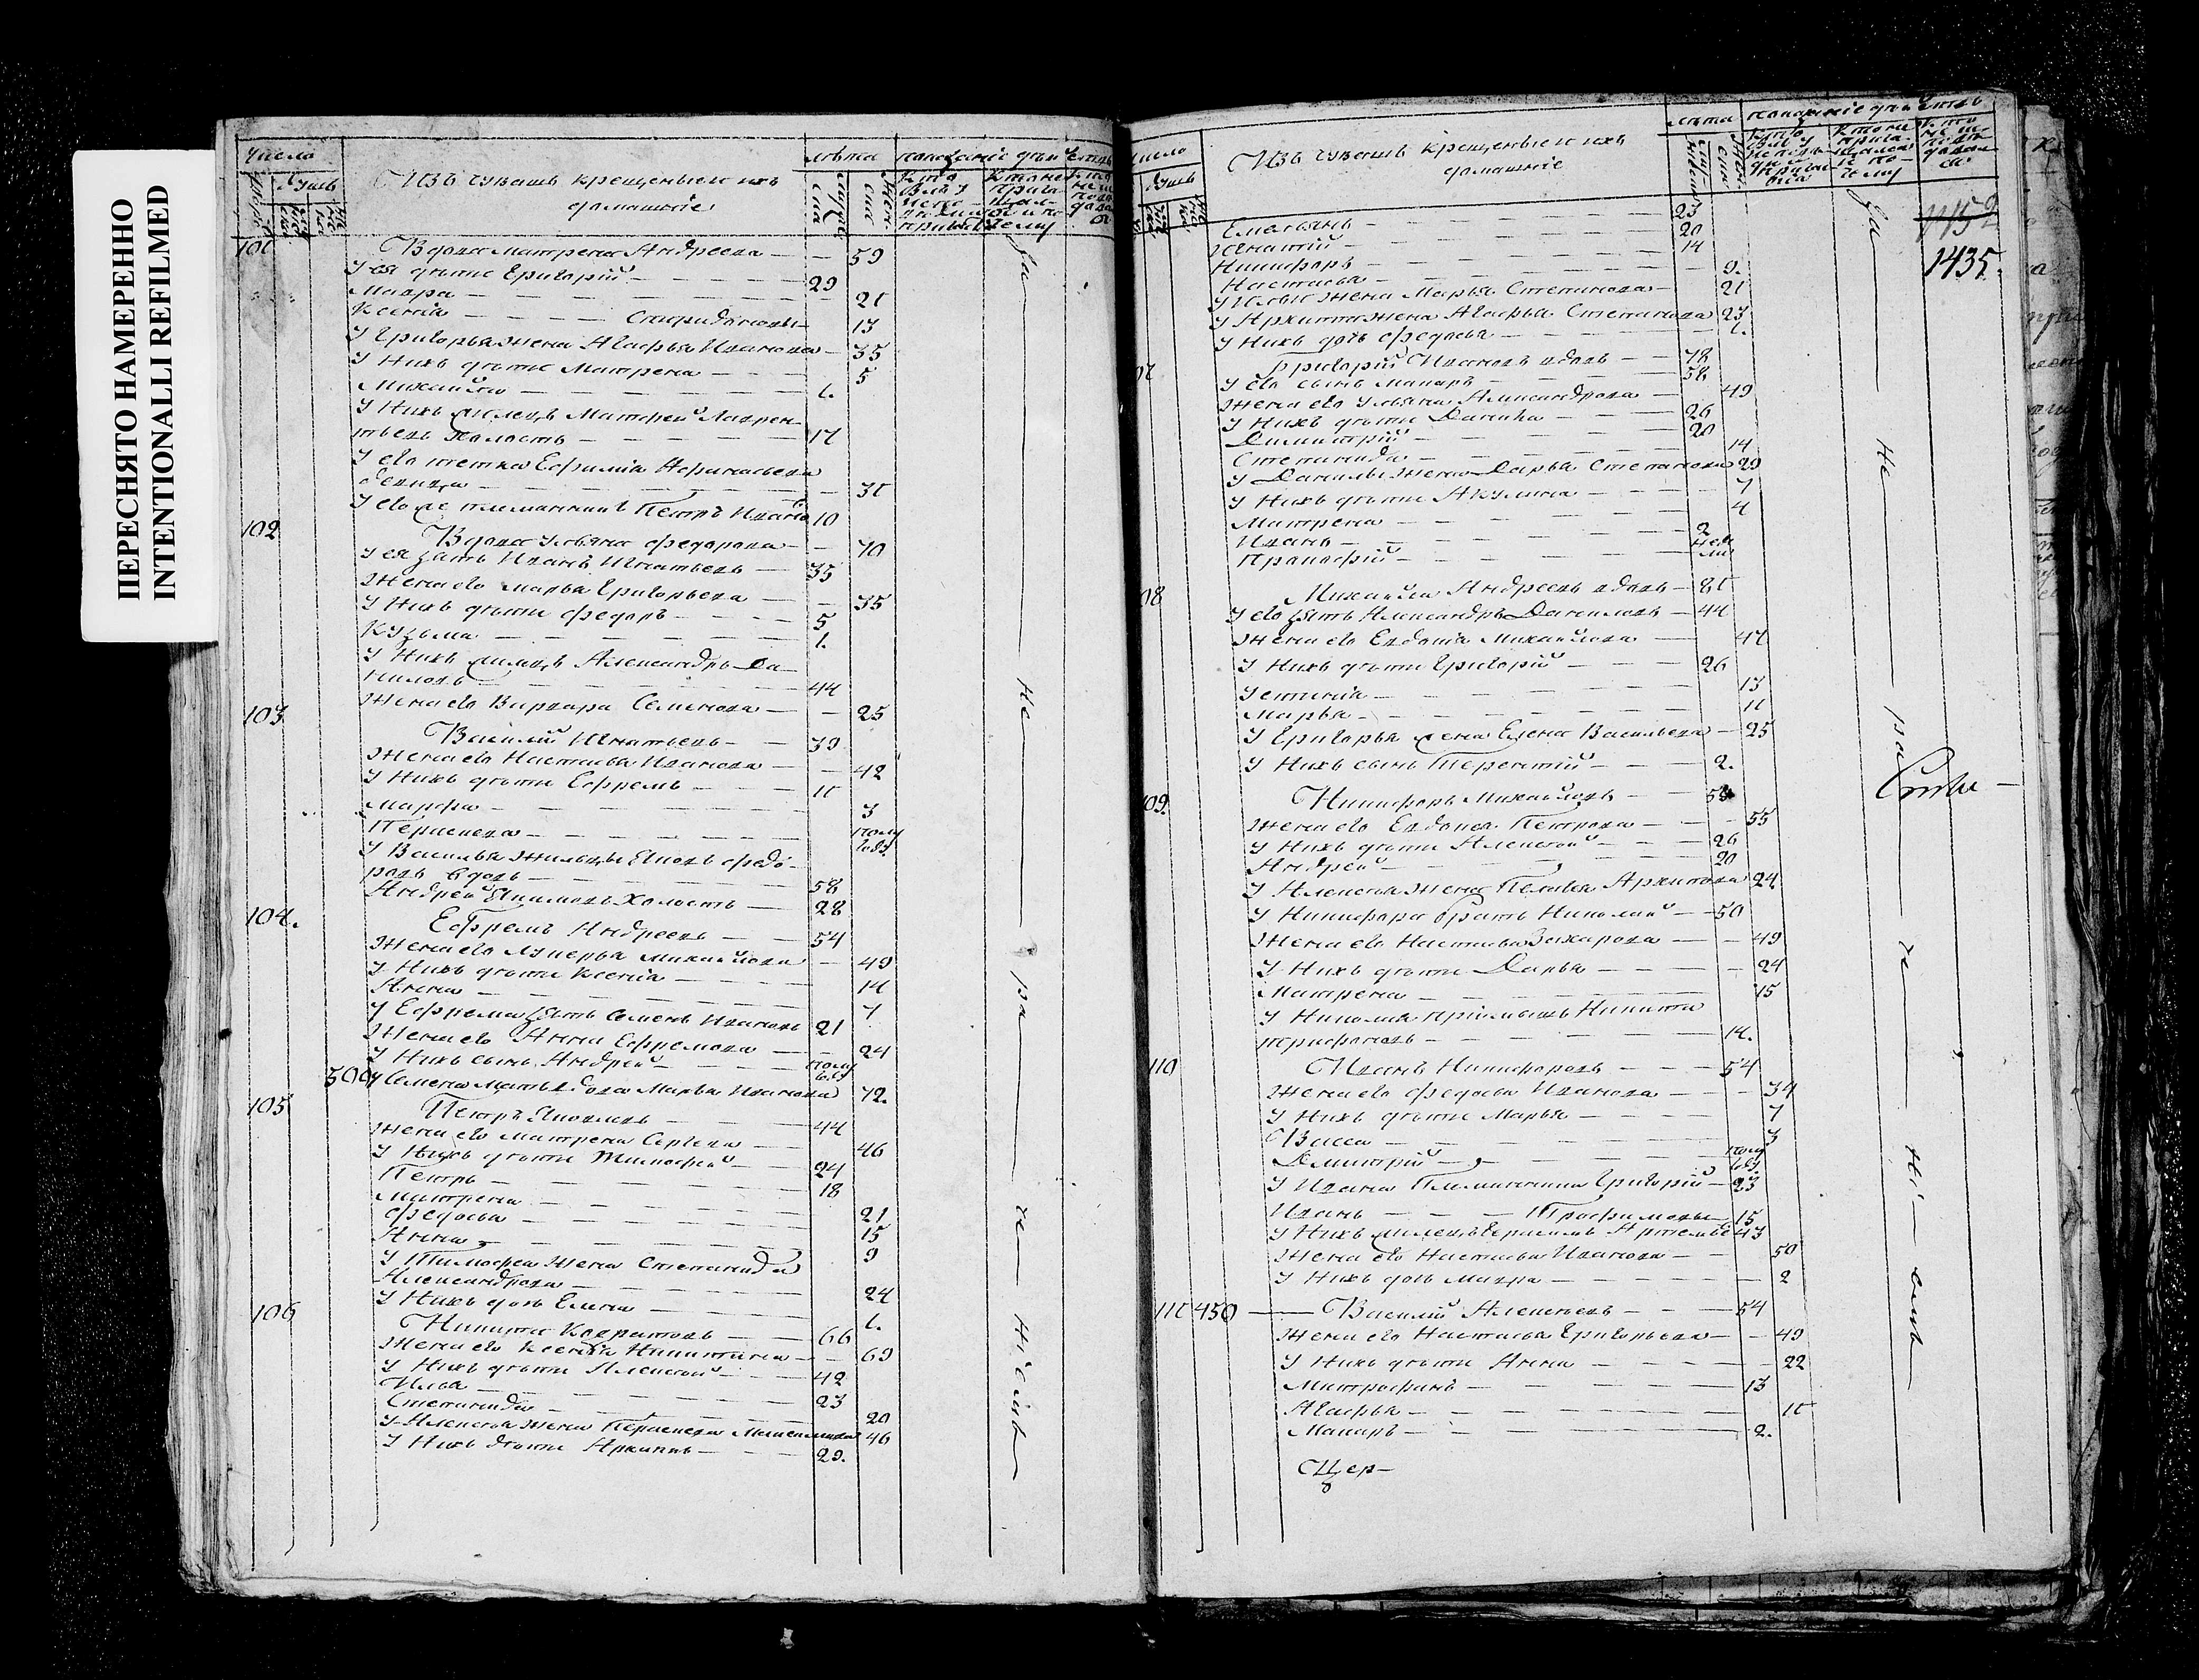 ПЕРЕСНЯТО НАМЕРЕННО
INTENTIONALLI REFILMED
Число
Душъ
Изъ чувашъ крещеные и ихъ
домашніе
лѣта
101 Вдова Матрена Андреева 59
У ея дѣти Григорій 29
Мавра 21
Ксенія Спиридоновы 13
У Григорья жена Агафья Иванова 35
У нихъ дѣти Матрена 5
Михайло 1.
У нихъ жилецъ Матфей Лаврен
тьевъ холостъ 17
У его тетка Евфимія Афанасьева
девица 31
У его же племянникъ Петръ Ивано 10
102 Вдова Ульяна Федорова 70
У ея зять Иванъ Игнатьевъ 35
Жена его Марья Григорьева 35
У нихъ дѣти Федоръ 5
Кузьма 1.
У нихъ жилецъ Александръ Да
ниловъ 44
Жена его Варвара Семенова 25
103 Василій Игнатьевъ 39
Жена его Настасья Иванова 42
У нихъ дѣти Ефремъ 11
Марфа 3
Парасковья полу
году
У Василья жилецъ Якимъ Федо-
ровъ вдовъ 58
Андрей Якимовъ холостъ 28
104. Ефремъ Андреевъ 54
Жена его Лукерья Михайлова 49
У нихъ дѣти Ксенія 14
Анна 7
У Ефрема зять Семенъ Ивановъ 21
Жена его Анна Ефремова 24
У нихъ сынъ Андрей полу
году
500 У Семена мать вдова Марья Иванова 72.
105 Петръ Яковлевъ 44
Жена его Матрена Сергеева 46
У нихъ дѣти Тимофей 24
Петръ 18
Матрена 21
Федосья 15
Анна 9
У Тимофея жена Степанида
Александрова 24
У нихъ дочь Елена 1.
106 Никита 66
Жена его Ксенія Никитина 69
У нихъ дѣти Алексей 42
Илья 23
Степанида 20
У Алексея жена 46
У нихъ дѣти Архипъ 29.
Изъ чувашъ крещеные и ихъ
домашніе
лѣта
Емельянъ 23
Игнатій 20
Никифоръ 14
Настасья 9.
У Ильи жена Марья Степанова 21
У Архипа жена Агафья Степанова 23
У нихъ дочь Федосья 1.
1435.
07 Григорій Ивановъ вдовъ 78
У его сынъ Макаръ 58
Жена его Ульяна Александрова 49
У нихъ дѣти Данила 26
Димитрій 20
Степанида 14
У Данилы жена Дарья Степанова 29
У нихъ дѣти Акулина 7
Матрена 4
Иванъ 2
Прокофій
08 Михайла Андреевъ вдовъ 81
У его зять Александръ Даниловъ 44
Жена его Евдокія Михайлова 47
У нихъ дѣти Григорій 26
Устинія 13
Марья 11
У Григорья жена Елена Васильева 25
У нихъ сынъ Терентій 2.
109. Никифоръ Михайловъ 58
Жена его Евдокия Петрова 55
У нихъ дѣти Алексей 26
Андрей 20
У Алексея жена Пелагея Архипова 24
У Никифора братъ Николай 50
Жена его Настасья Захарова 49
У нихъ дѣти Дарья 24
Матрена 15
У Николая пріемышъ Никита
Трифоновъ 14.
110 Иванъ Никифоровъ 54
Жена его Федосья Иванова 34
У нихъ дѣти Марья 7
Васса 3
Дмитрій полу
году
У Ивана племянники Григорій 23
Иванъ Трофимовы 15
У нихъ жилецъ 43
Жена его Настасья Иванова 50
У нихъ дочь Мавра 2
111 450 Василій Алексеевъ 54
Жена его Настасья Григорьева 49
У нихъ дѣти Анна 22
Митрофанъ 13
Агафья 11
Макаръ 2.
Цер-